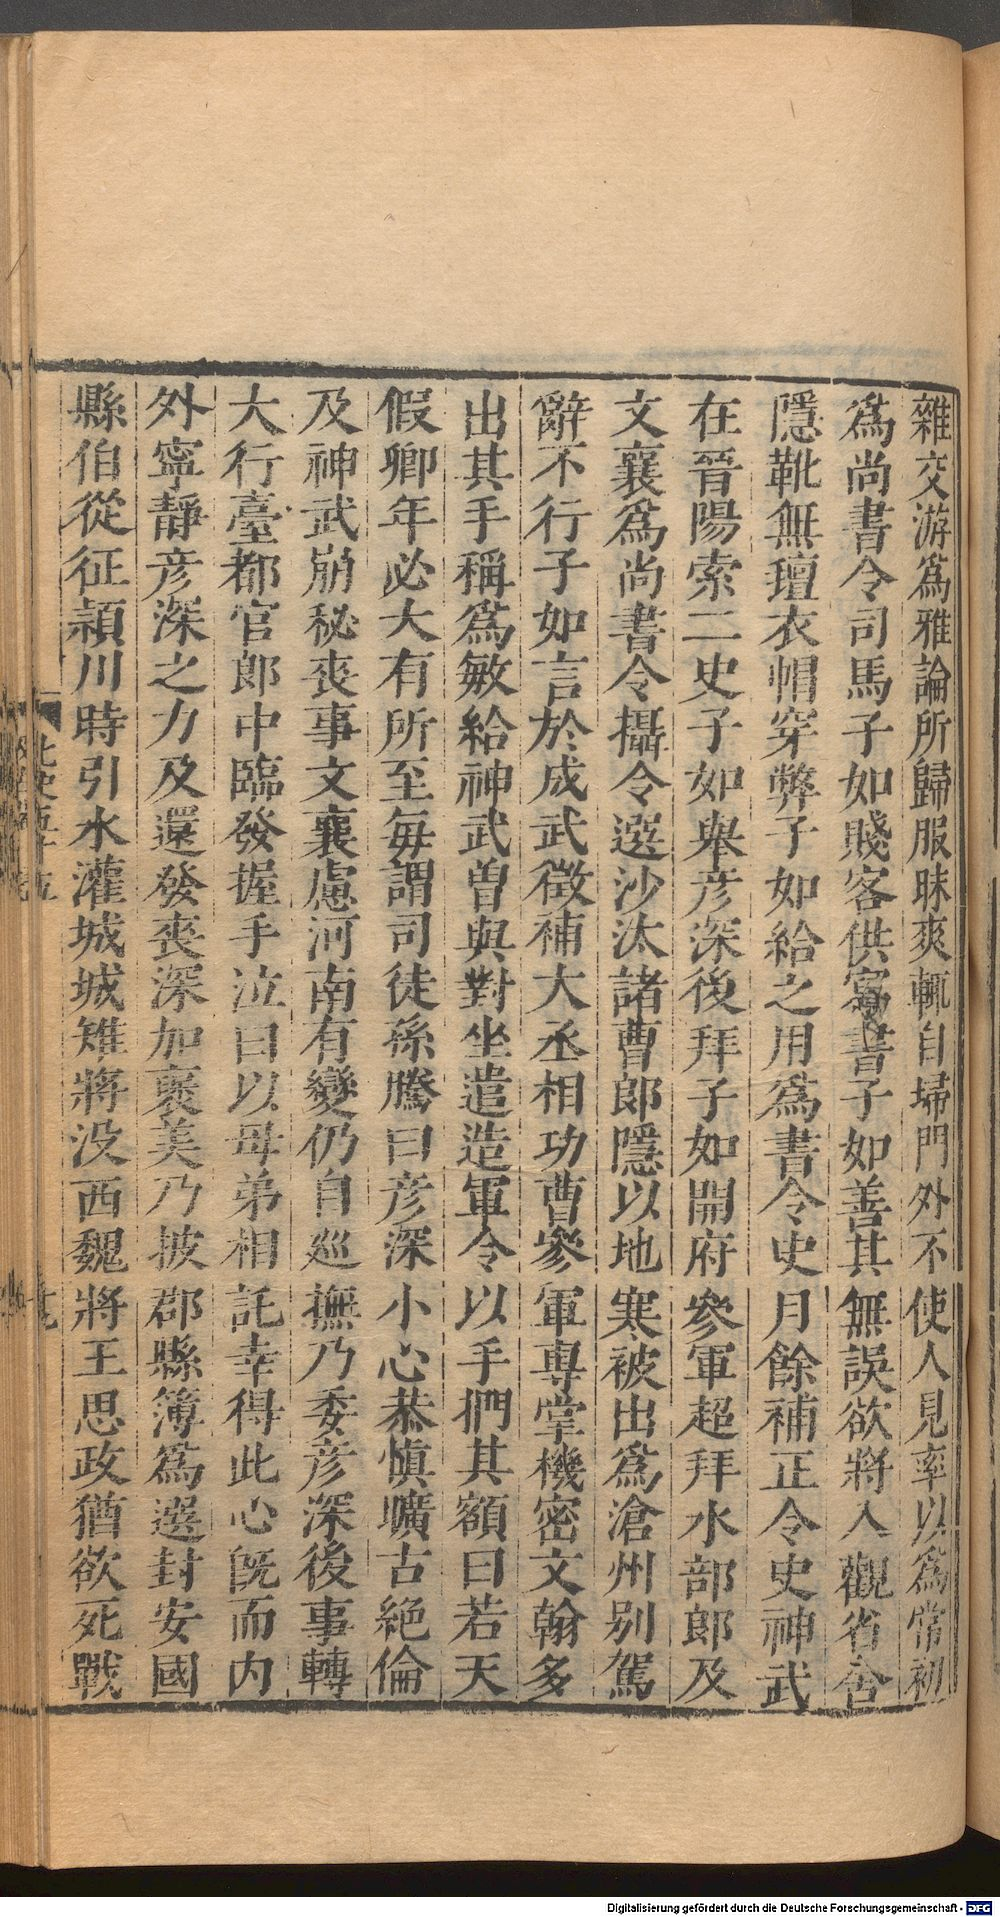 雜交游爲雅論所歸服昧爽輒自埽門外不使人見率以爲常初
爲尚書令司馬子如賤客供寫書子如善其無誤欲將入觀省舍
隱靴無氊衣帽穿弊子如給之用爲書令史月餘補正令史神武
在晉陽索二史子如舉彥深後拜子如開府參軍超拜水部郎及
文襄爲尚書令攝令選沙汰諸曹郎隱以地寒被出爲滄州别駕
辭不行子如言於成武徴補大丞相功曹參軍專掌機密文翰多
出其手稱爲敏給神武曽與對坐遣造軍令以手捫其額曰若天
假卿年必大有所至毎謂司徒孫騰曰彥深小心恭愼曠古絶倫
及神武崩秘喪事文襄慮河南有變仍自巡撫乃委彥深後事轉
大行臺都官郎中臨發握手泣曰以母弟相託幸得此心旣而内
外寧靜彥深之力及還發喪深加褒美乃披郡縣簿爲選封安國
縣伯從征頴川時引水灌城城雉將没西魏將王思政猶欲死戰
北史五十五
Digitalisierung gefördert durch die Deutsche Forschungsgemeinschaft - DFG